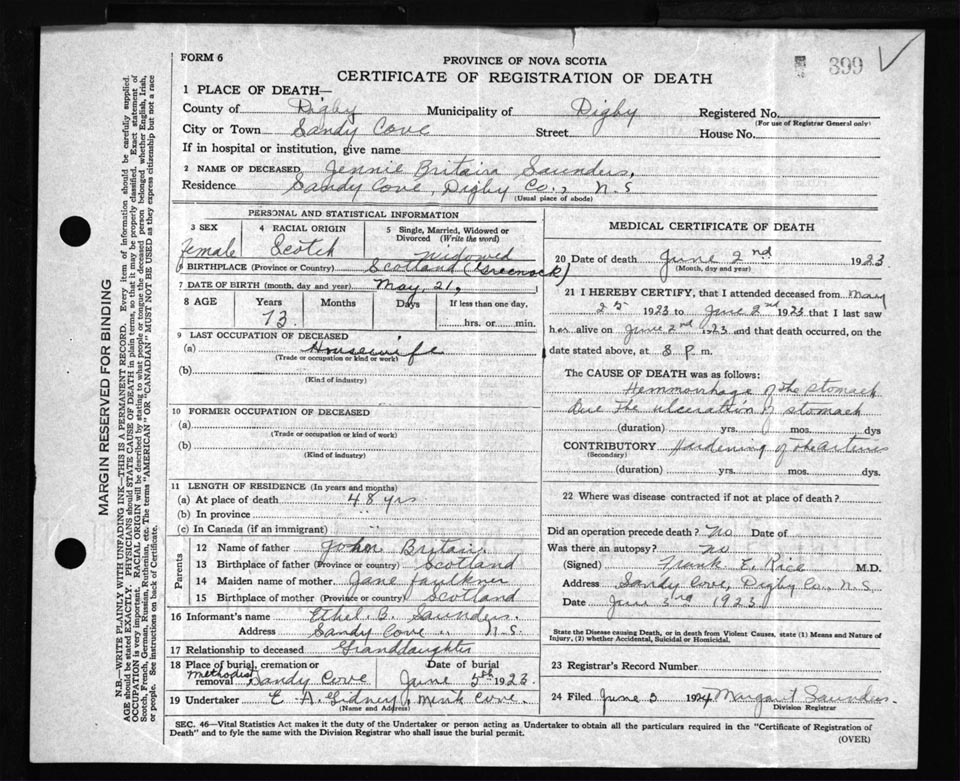 FORM 6
PROVINCE OF NOVA SCOTIA
399
CERTIFICATE OF REGISTRATION OF DEATH
1 PLACE OF DEATH—
County of Digby Municipality of Digby Registered No.
(For use of Registrar General only)
City or Town Sandy Cove Street House No.
If in hospital or institution, give name
2 NAME OF DECEASED Jennie Britain Saunders,
Residence Sandy Cove, Digby Co., N.S
(Usual place of abode)
PERSONAL AND STATISTICAL INFORMATION
3 SEX 4 RACIAL ORIGIN 5 Single, Married, Widowed or Divorced (Write the word)
Female Scotch Widowed
6 BIRTHPLACE (Province or Country) Scotland (Greenock)
7 DATE OF BIRTH (month, day and year) May, 21,
8 AGE Years Months Days If less than one day,
73. hrs. or min.
9 LAST OCCUPATION OF DECEASED
(a) Housewife
(Trade or occupation or kind or work)
(b)
(Kind of industry)
10 FORMER OCCUPATION OF DECEASED
(a)
(Trade or occupation or kind of work)
(b)
(Kind of industry)
11 LENGTH OF RESIDENCE (In years and months)
(a) At place of death 48 yrs
(b) In province "
(c) In Canada (if an immigrant) "
Parents
12 Name of father John Britain
13 Birthplace of father (Province or country) Scotland
14 Maiden name of mother Jane Faulkner
15 Birthplace of mother (Province or country) Scotland
16 Informant's name Ethel B. Saunders.
Address Sandy Cove " N.S.
17 Relationship to deceased Granddaughter
18 Place of burial, cremation or removal Methodist Sandy Cove
Date of burial June 5th 1923.
19 Undertaker E. A. Gidney, Mink Cove.
(Name and Address)
MEDICAL CERTIFICATE OF DEATH
20 Date of death June 2nd 1923.
(Month, day and year)
21 I HEREBY CERTIFY, that I attended deceased from May
25 1923 to June 2nd 1923 that I last saw
her alive on June 2nd 1923 and that death occurred, on the
date stated above, at 8 P. m.
The CAUSE OF DEATH was as follows:
Hemmorrhage of the stomach
due the ulceration of stomach
(duration) yrs. mos. dys
CONTRIBUTORY Hardening of the arteries
(Secondary)
(duration) yrs. mos. dys.
22 Where was disease contracted if not at place of death?
Did an operation precede death? No Date of
Was there an autopsy? No
(Signed) Frank E. Rice M.D.
Address Sandy Cove, Digby Co., N.S.
Date June 3rd 1923
State the Disease causing Death, or in death from Violent Causes, state (1) Means and Nature of
Injury, (2) whether Accidental, Suicidal or Homicidal.
23 Registrar's Record Number
24 Filed June 5 1924 Margaret Saunders
Division Registrar
SEC. 46—Vital Statistics Act makes it the duty of the Undertaker or person acting as Undertaker to obtain all the particulars required in the "Certificate of Registration of
Death" and to fyle the same with the Division Registrar who shall issue the burial permit.
(OVER)
MARGIN RESERVED FOR BINDING
N.B.—WRITE PLAINLY WITH UNFADING INK—THIS IS A PERMANENT RECORD. Every item of information should be carefully supplied.
AGE should be stated EXACTLY. PHYSICIANS should STATE CAUSE OF DEATH in plain terms, so that it may be properly classified. Exact statement of
OCCUPATION is very important. RACIAL ORIGIN will be described by stating to what people or tongue the deceased person belonged whether English, Irish,
Scotch, French, German, Russian, Ruthenian, etc. The terms "AMERICAN" OR "CANADIAN" MUST NOT BE USED as they express citizenship but not a race
or people. See instructions on back of Certificate.